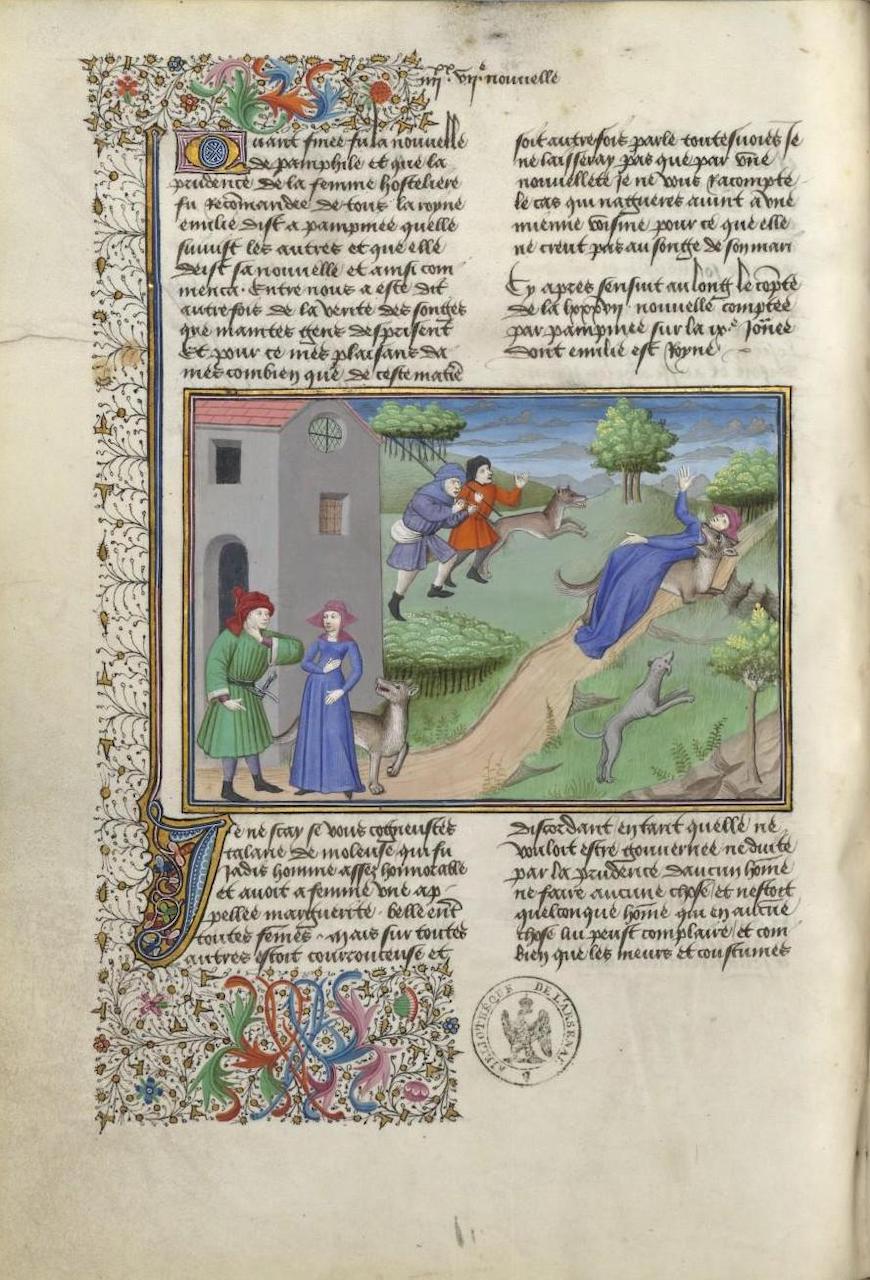 iiii^xx. vii^e. nouvelle
Quant finee fu la nouvelle
de pamphile et que la
prudence de la femme hosteliere
fu Recomandee de tous la royne
emilie dist a pampinee quelle
suivist les autres et que elle
deist sa nouvelle et ainsi com
menca. Entre nous a este dit
autrefois de la verite des songes
que maintes gens desprisent
Et pour ce mes plaisans da
mes combien que de ceste matiē
soit autrefois parle toutesvoies Je
ne laisseray pas que par vne
nouvellete Je ne vous Racompte
le cas qui nagueres avint a vne
mienne voisine pour ce que elle
ne creut pas au songe de son mari
Cy apres sensuit au long le cōpte
de la lxxxvii^e nouvelle comptee
par pampinee sur la ix^e Jōnee
dont emilie est Royne
Je ne scay se vous cogneustes
talane de molense qui fu
Jadis homme assez honnorable
et avoit a femme vne ap-
pellee marguerite. belle ent̄
toutes femēs. Mais sur toutes
autres estoit courrouceuse et
discordant en tant quelle ne
vouloit estre gouvernee ne duite
par la prudence daucun hōme
ne faire aucune chose et nestoit
quelconque hōme qui en aucūe
chose lui peust complaire et com
bien que les meurs et coustumes
BIBLIOTHÈQUE DE L'ARSENAL